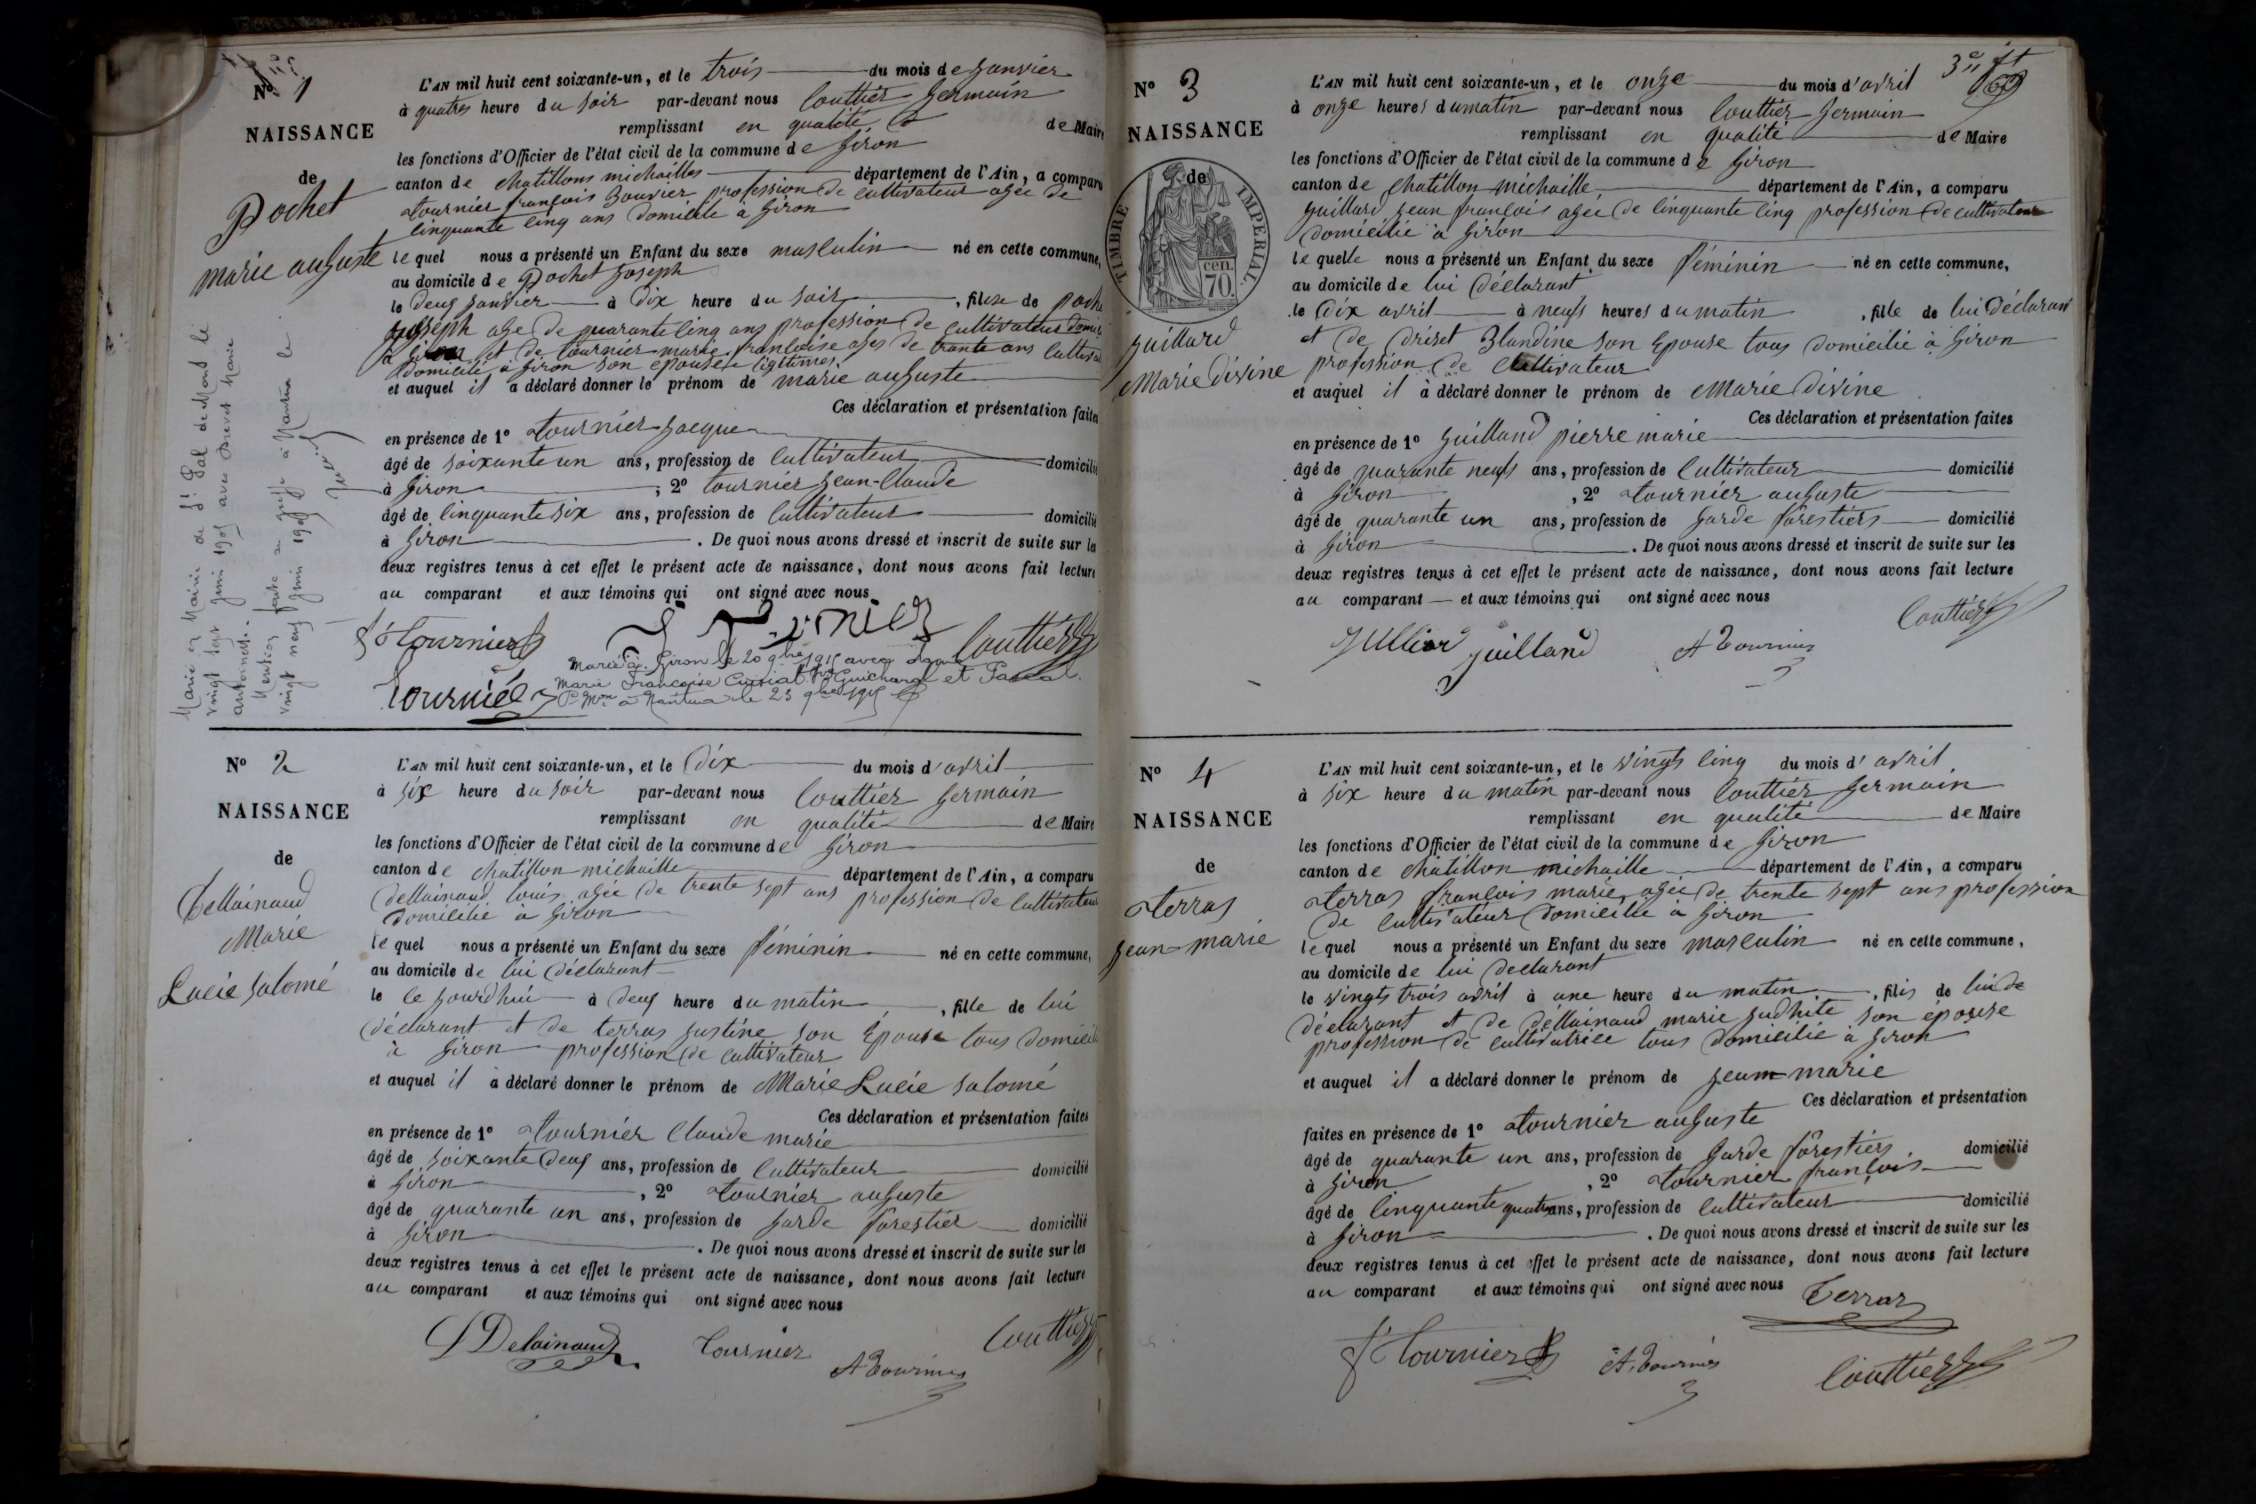 Nº 1
NAISSANCE
de
Pochet
marie auguste
L'AN mil huit cent soixante-un, et le trois du mois de Janvier
à quatres heure du soir par-devant nous Couttier Germain
remplissant en qualité de Maire
les fonctions d'Officier de l'état civil de la commune de Giron
canton de chatillons michailles département de l'Ain, a comparu
tournier françois Bouvier profession de cultivateur agée de
cinquante cinq ans domicile à Giron
le quel nous a présenté un Enfant du sexe masculin né en cette commune,
au domicile de Pochet Joseph
le deux Janvier à Dix heure du soir, fils de poche
Joseph age de quarante cinq ans profession de cultivateur domi
à Giron et de tournier marie françoise ages de trante ans cultiva
Domicile à Giron son épouse légitimes
et auquel il a déclaré donner le prénom de marie auguste
Ces déclaration et présentation faites
en présence de 1º tournier Jacque
âgé de soixante un ans, profession de Cultivateur domicilié
à Giron, 2º tournier Jean-Claude
âgé de cinquante six ans, profession de Cultivateur domicilié
à Giron. De quoi nous avons dressé et inscrit de suite sur les
deux registres tenus à cet effet le présent acte de naissance, dont nous avons fait lecture
au comparant et aux témoins qui ont signé avec nous
f Tournier Couttier
Marié à Giron le 20 9bre 1915 avec
Marie Françoise Curiat Vve Guichard et Pascal
Pr Mon à Nantua le 23 9bre 1915
Tournier
Marié en Mairie de St Gal de Mont le
vingt sept Juin 1905 avec Marie
antoinette.
Mention faite au greffe à Nantua le
vingt neuf Juin 1905
Nº 2
NAISSANCE
de
Dellainaud
Marie
Lucie Salomé
L'AN mil huit cent soixante-un, et le Dix du mois d'avril
à six heure du soir par-devant nous Couttier Germain
remplissant en qualité de Maire
les fonctions d'Officier de l'état civil de la commune de Giron
canton de chatillon michaille département de l'Ain, a comparu
Dellainaud louis agée de trente sept ans profession de Cultivateur
Domicilié à Giron
le quel nous a présenté un Enfant du sexe féminin né en cette commune,
au domicile de lui déclarant
le ce jourdhui à deux heure du matin, fille de lui
déclarant et de terras justine son Epouse tous domicili
à Giron profession de cultivateur
et auquel il a déclaré donner le prénom de Marie Lucie Salomé
Ces déclaration et présentation faites
en présence de 1º tournier Claude marie
âgé de soixante deux ans, profession de Cultivateur domicilié
à Giron, 2º tournier auguste
âgé de quarante un ans, profession de Garde forestier domicilié
à Giron. De quoi nous avons dressé et inscrit de suite sur les
deux registres tenus à cet effet le présent acte de naissance, dont nous avons fait lecture
au comparant et aux témoins qui ont signé avec nous
Delainaud Tournier A Tournier Couttier
3e ft
Nº 3
NAISSANCE
de
TIMBRE IMPERIAL
70 cen.
Guillard
Marie Divine
L'AN mil huit cent soixante-un, et le onze du mois d'avril
à onze heures du matin par-devant nous Couttier Germain
remplissant en qualité de Maire
les fonctions d'Officier de l'état civil de la commune de Giron
canton de Chatillon michaille département de l'Ain, a comparu
Guillard Jean françois agée de cinquante cinq profession de cultivateur
domicilié à Giron
le quelle nous a présenté un Enfant du sexe féminin né en cette commune,
au domicile de lui déclarant
le Dix avril à neufs heures du matin, fille de lui Déclarant
et de Driset Blandine son Epouse tous domicilié à Giron
profession de Cultivateur
et auquel il à déclaré donner le prénom de Marie Divine
Ces déclaration et présentation faites
en présence de 1º Guilland pierre marie
âgé de quarante neufs ans, profession de Cultivateur domicilié
à Giron, 2º tournier auguste
âgé de quarante un ans, profession de Garde forestiers domicilié
à Giron. De quoi nous avons dressé et inscrit de suite sur les
deux registres tenus à cet effet le présent acte de naissance, dont nous avons fait lecture
au comparant et aux témoins qui ont signé avec nous
Couttier
Guilland A Tournier
Nº 4
NAISSANCE
de
terras
Jean-marie
L'AN mil huit cent soixante-un, et le vingts cinq du mois d'avril
à six heure du matin par-devant nous Couttier Germain
remplissant en qualité de Maire
les fonctions d'Officier de l'état civil de la commune de Giron
canton de chatillon michaille département de l'Ain, a comparu
terras françois marie agée de trente sept ans profession
de cultivateur domicilié à Giron
le quel nous a présenté un Enfant du sexe masculin né en cette commune,
au domicile de lui déclarant
le vingts trois avril à une heure du matin, fils de lui de
déclarant et de dellainaud marie judhite son épouse
profession de cultivatrice tous domicilié à Giron
et auquel il a déclaré donner le prénom de Jean-marie
Ces déclaration et présentation
faites en présence de 1º tournier auguste
âgé de quarante un ans, profession de Garde forestiers domicilié
à Giron, 2º tournier françois
âgé de cinquante quatre ans, profession de Cultivateur domicilié
à Giron. De quoi nous avons dressé et inscrit de suite sur les
deux registres tenus à cet effet le présent acte de naissance, dont nous avons fait lecture
au comparant et aux témoins qui ont signé avec nous
Terras
f Tournier A. Tournier Couttier